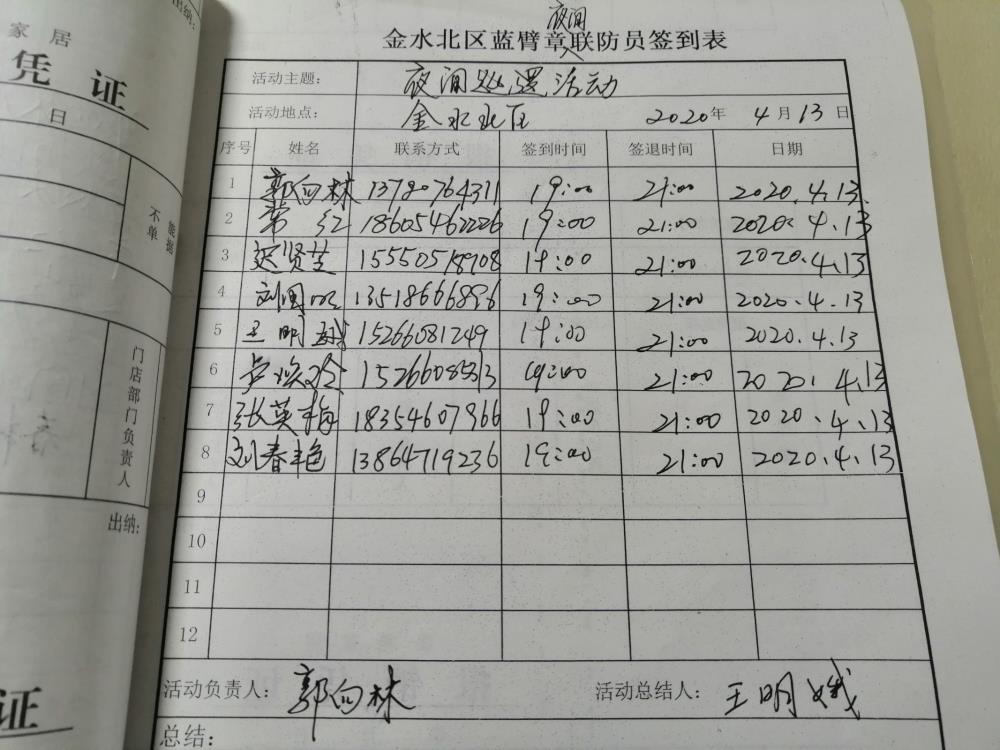 出纳:
家居
凭 证
日
不单
能据
门店部门负责人
出纳:
证
夜间
金水北区蓝臂章联防员签到表
活动主题: 夜间巡逻活动
活动地点: 金水北区 2020年 4月13日
序号 姓名 联系方式 签到时间 签退时间 日期
1 郭向林 13780764311 19:00 21:00 2020.4.13
2 常红 18605462226 19:00 21:00 2020.4.13
3 贤芝 15550518908 19:00 21:00 2020.4.13
4 13518666896 19:00 21:00 2020.4.13
5 王明娥 15266081249 19:00 21:00 2020.4.13
6 19:00 21:00 2020.4.13
7 张英梅 18354607966 19:00 21:00 2020.4.13
8 刘春艳 13864719236 19:00 21:00 2020.4.13
9
10
11
12
活动负责人: 郭向林 活动总结人: 王明娥
总结: